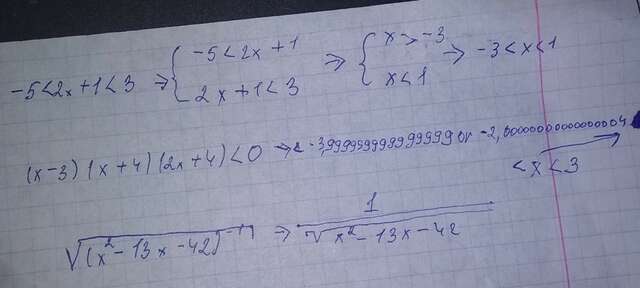 -5<2x+1<3 => { -5<2x+1 2x+1<3 => { x>-3 x<1 => -3<x<1
(x-3)(x+4)(2x+4)<0 => -3,99999999999999999 or -2,000000000000000004
<x<3
√(x²-13x-42)⁻¹ => 1/√x²-13x-42